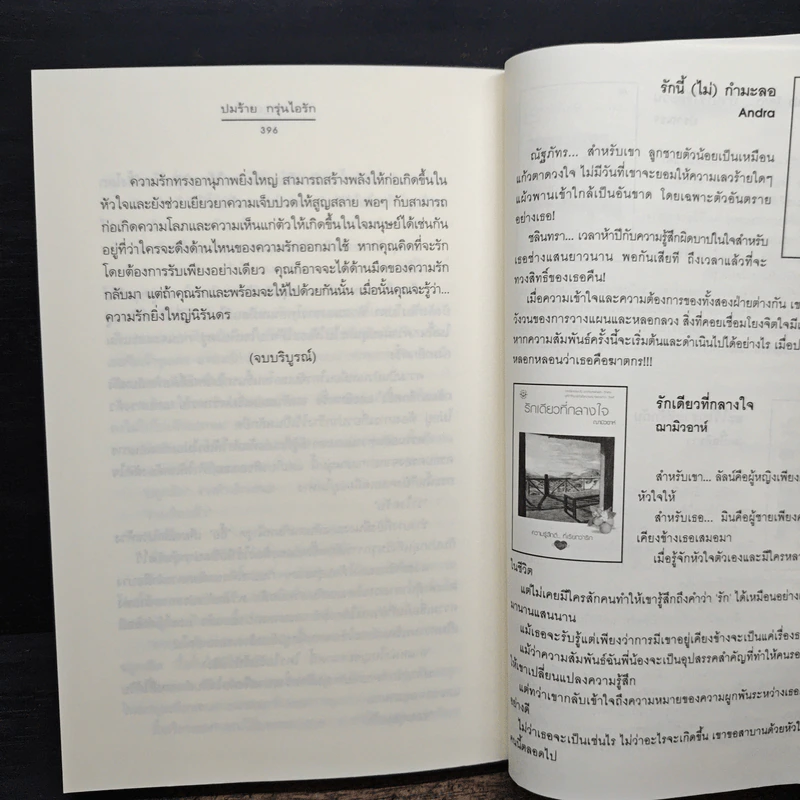 ปมร้าย กรุ่นไอรัก
396
ความรักทรงอานุภาพยิ่งใหญ่ สามารถสร้างพลังให้ก่อเกิดขึ้นใน
หัวใจและยังช่วยเยียวยาความเจ็บปวดให้สูญสลาย พอๆ กับสามารถ
ก่อเกิดความโลภและความเห็นแก่ตัวให้เกิดขึ้นในใจมนุษย์ได้เช่นกัน
อยู่ที่ว่าใครจะดึงด้านไหนของความรักออกมาใช้ หากคุณคิดที่จะรัก
โดยต้องการรับเพียงอย่างเดียว คุณก็อาจจะได้ด้านมืดของความรัก
กลับมา แต่ถ้าคุณรักและพร้อมจะให้ไปด้วยกันนั้น เมื่อนั้นคุณจะรู้ว่า...
ความรักยิ่งใหญ่นิรันดร
(จบบริบูรณ์)
รักนี้ (ไม่) กำมะลอ
Andra
ณัฐภัทร... สำหรับเขา ลูกชายตัวน้อยเป็นเหมือน
แก้วตาดวงใจ ไม่มีวันที่เขาจะยอมให้ความเลวร้ายใดๆ
แผ้วพานเข้าใกล้เป็นอันขาด โดยเฉพาะตัวอันตราย
อย่างเธอ!
ชลินทรา... เวลาห้าปีกับความรู้สึกผิดบาปในใจสำหรับ
เธอช่างแสนยาวนาน พอกันเสียที ถึงเวลาแล้วที่จะ
ทวงสิทธิ์ของเธอคืน!
เมื่อความเข้าใจและความต้องการของทั้งสองฝ่ายต่างกัน
วังวนของการวางแผนและหลอกลวง สิ่งที่คอยเชื่อมโยงจิตใจ
หากความสัมพันธ์ครั้งนี้จะเริ่มต้นและดำเนินไปได้อย่างไร
หลอกหลอนว่าเธอคือฆาตกร!!!
รักเดียวที่กลางใจ
ฌามิวอาห์
รักเดียวที่กลางใจ
ฌามิวอาห์
ความรู้สึกดี... ที่เรียกว่ารัก
สำหรับเขา... ลัลน์คือผู้หญิงเพียง
หัวใจให้
สำหรับเธอ... มินคือผู้ชายเพียง
เคียงข้างเธอเสมอมา
เมื่อรู้จักหัวใจตัวเองและมีใคร
ในชีวิต
แต่ไม่เคยมีใครสักคนทำให้เขารู้สึกถึงคำว่า 'รัก' ได้เหมือน
มานานแสนนาน
แม้เธอจะรับรู้แต่เพียงว่าการมีเขาอยู่เคียงข้างจะเป็นแค่เรื่อง
แม้ว่าความสัมพันธ์ฉันพี่น้องจะเป็นอุปสรรคสำคัญที่ทำให้คน
ให้เขาเปลี่ยนแปลงความรู้สึก
แต่ทว่าเขากลับเข้าใจถึงความหมายของความผูกพันระหว่าง
อย่างดี
ไม่ว่าเธอจะเป็นเช่นไร ไม่ว่าอะไรจะเกิดขึ้น เขาขอสาบานด้วย
คนนี้ตลอดไป